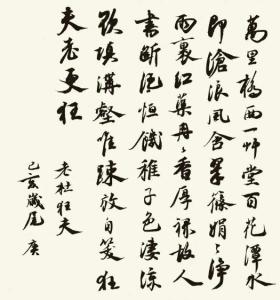 萬里橋西一艸堂百花潭水
即滄浪風含翠篠娟〻淨
雨裛紅蕖冉〻香厚祿故人
書斷絕恒饑稚子色淒涼
欲填溝壑惟踈放自笑狂
夫老更狂
老杜狂夫
己亥歲尾庚